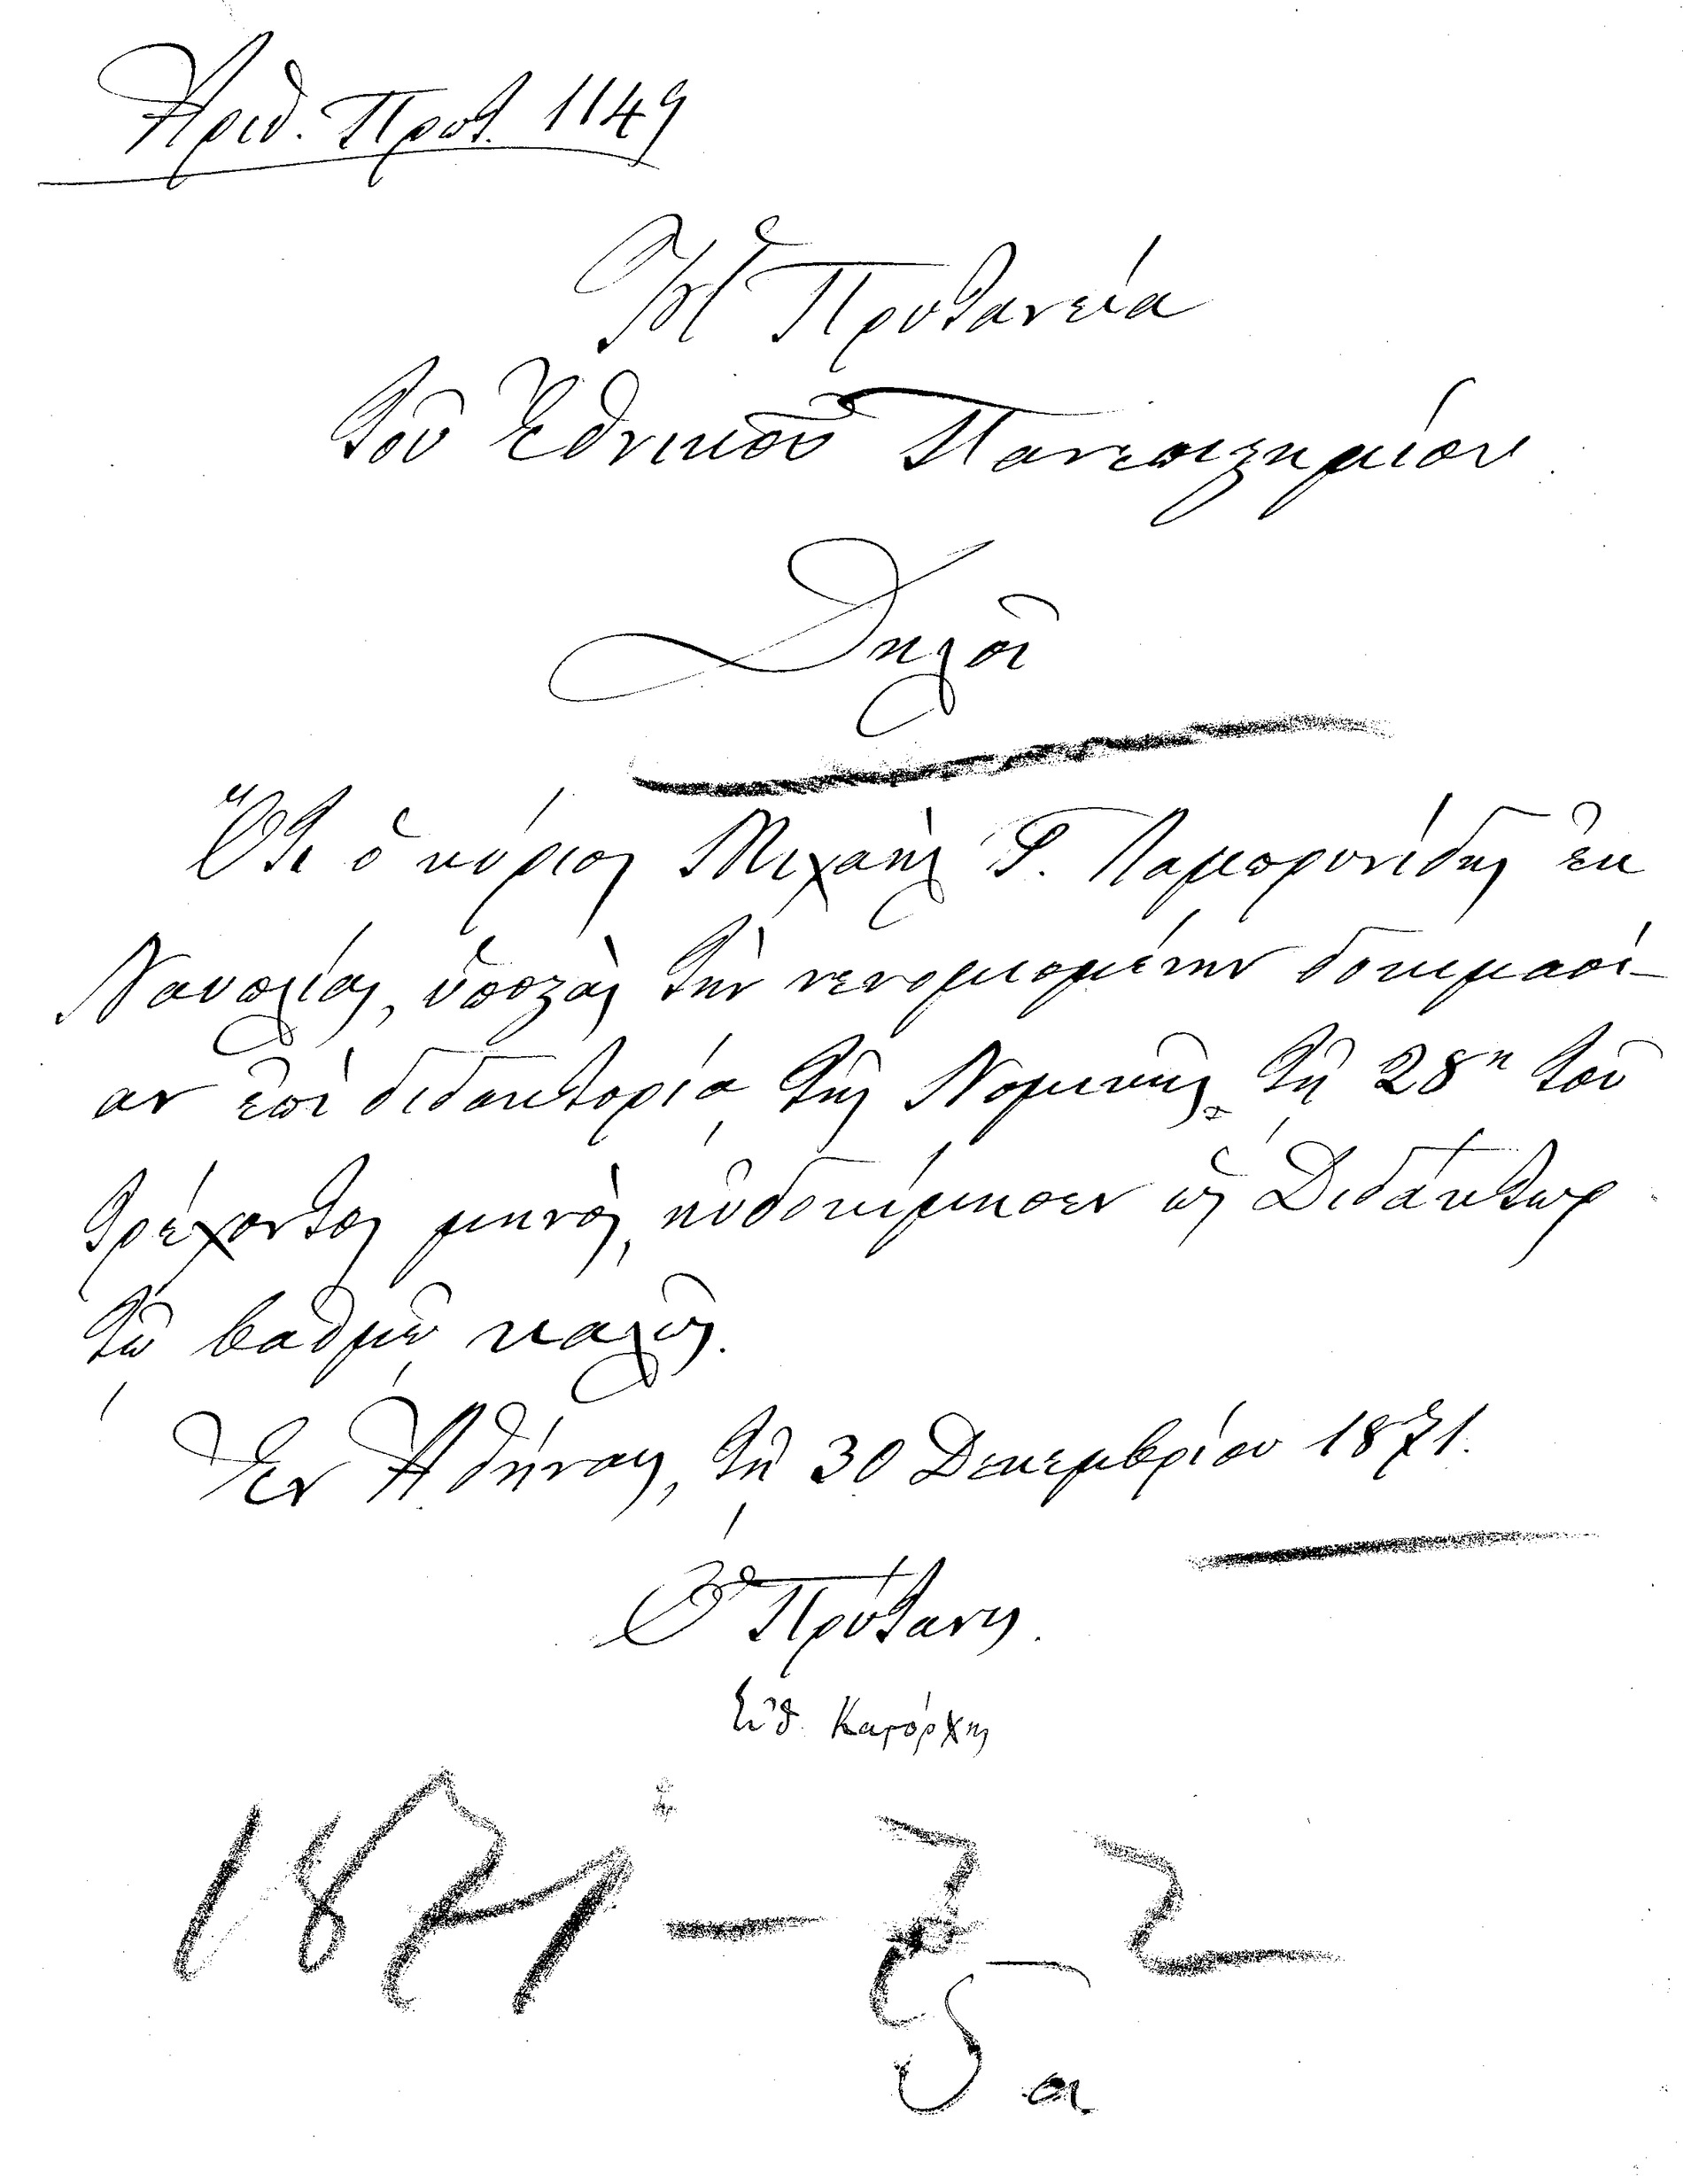 Ἀριθ. Πρωτ. 1149
Ἡ Πρυτανεία
τοῦ Ἐθνικοῦ Πανεπιστημίου
Δηλοῖ
Ὅτι ὁ κύριος Μιχαὴλ Γ. Λαμπρυνίδης ἐκ
Ναυπλίας, ὑποστὰς τὴν νενομισμένην δοκιμασί-
αν ἐπὶ διδακτορίᾳ τῆς Νομικῆς τῇ 28ῃ τοῦ
τρέχοντος μηνὸς, ηὐδοκίμησεν ὡς Διδάκτωρ
τῷ βαθμῷ καλῶς.
Ἐν Ἀθήναις, τῇ 30 Δεκεμβρίου 1871.
Ὁ Πρύτανις.
Εὐθ. Καστόρχης
1871 —
5
α